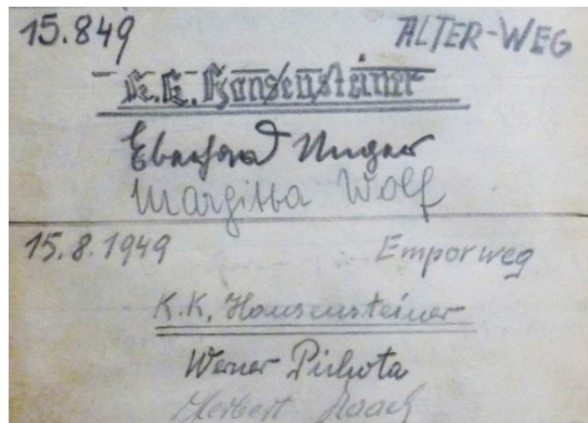 15.849 ALTER-WEG
K.K. Hansensteiner
Eberhard Unger
Margitta Wolf
15.8.1949 Emporweg
K.K. Hansensteiner
Werner Pichota
Herbert